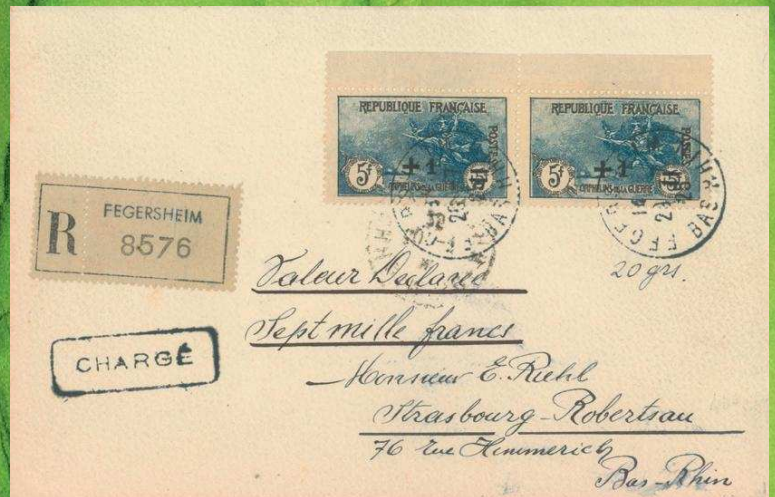 REPUBLIQUE FRANÇAISE
POSTES
+1F
5F 5F
ORPHELINS DE LA GUERRE
REPUBLIQUE FRANÇAISE
POSTES
+1F
5F 5F
ORPHELINS DE LA GUERRE
FEGERSHEIM
BAS-RHIN
FEGERSHEIM
BAS-RHIN
R FEGERSHEIM
8576
20 grs.
Valeur Déclarée
Sept mille francs
CHARGÉ
Monsieur E. Riehl
Strasbourg-Robertsau
76 rue Himmerich
Bas-Rhin